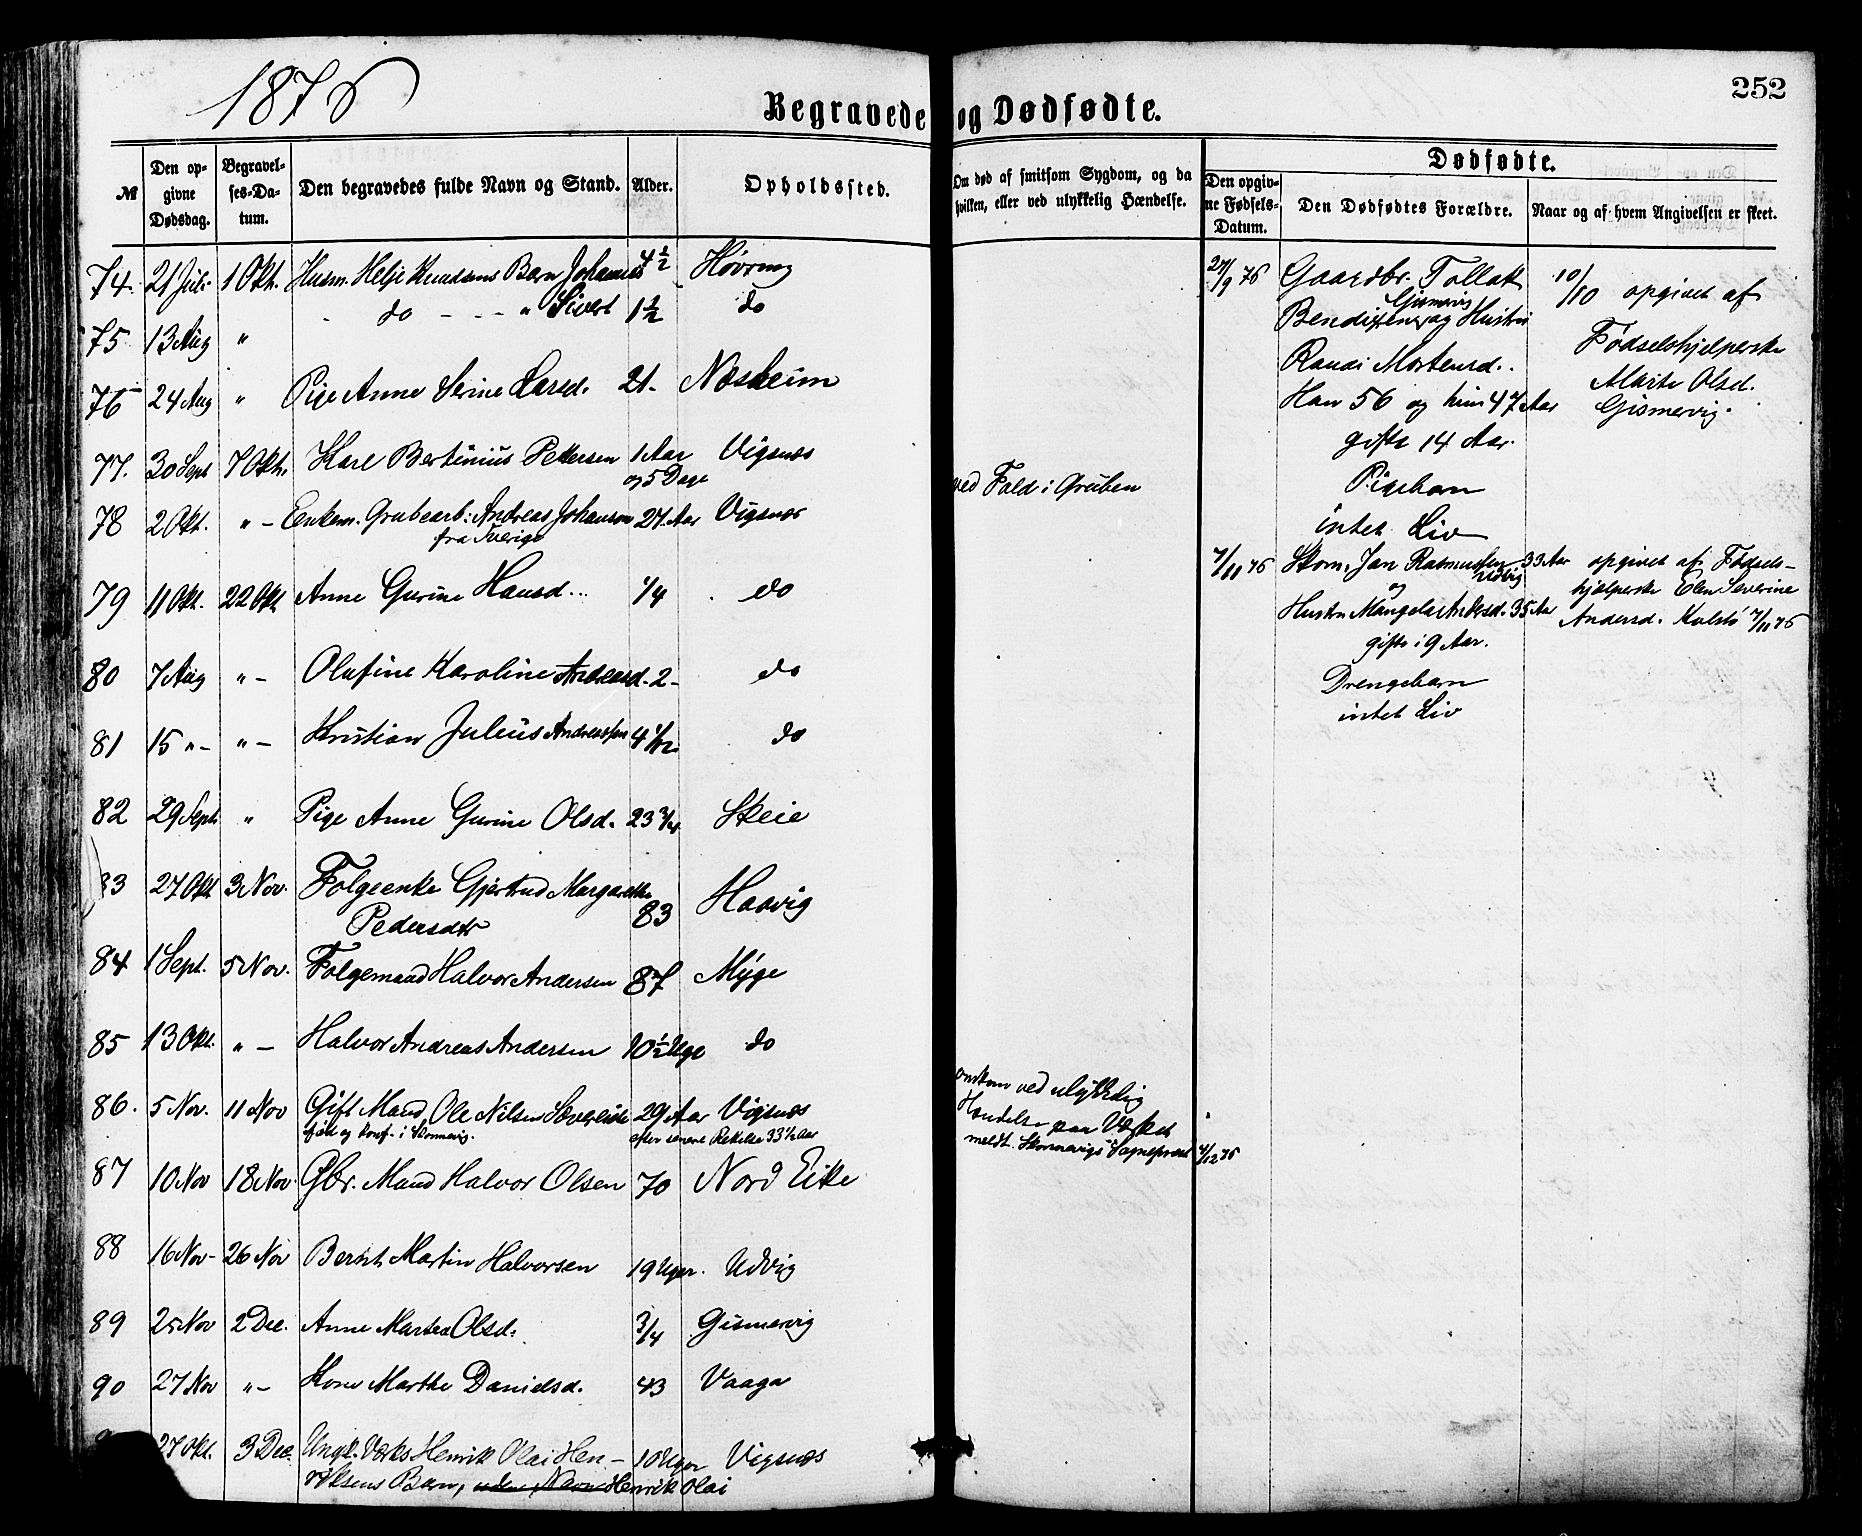 1876
252
Begravede og Dødfødte.
№
Den opgivne Dødsdag.
Begravelses-Datum.
Den begravedes fulde Navn og Stand.
Alder.
Opholdssted.
Om død af smitsom Sygdom, og da hvilken, eller ved ulykkelig Hændelse.
Dødfødte.
Den opgivne Fødsels-Datum.
Den Dødfødtes Forældre.
Naar og af hvem Angivelsen er skeet.
74. 21 Juli 1 Okt. Husm. Helje Knudsens Barn Johannes 4 1/2 Høvring
75 13 Aug " do - - - " Sivert 1 1/2 do
76 24 Aug " Pige Anne Serine Larsd. 21- Nesheim
77. 30 Sept 7 Okt. Karl Bertinius Pettersen 1 Aar og 5 Dage Vigsnæs
78 2 Okt. " - Enkem. Grubearb: Andreas Johanson 27 Aar Vigsnæs
fra Sverige
ved Fald i Gruben
79 11 Okt. 22 Okt Anne Gurine Hansd... 1/4 do
80 7 Aug " - Olufine Karoline Andreasd. 2 - do
81 15 " - " - Kristian Julius Andreassen 4 1/12 do
82 29 Sept " Pige Anne Gurine Olsd. 23 3/4 Skeie
83 27 Okt 3 Nov. Folgeenke Gjertrud Margarethe
Pedersdtr 83 Haavig
84 1 Sept. 5 Nov. Folgemand Halvor Andersen 87 Myge
85 13 Okt. " - Halvor Andreas Andersen 10 1/2 Uge do
86. 5 Nov. 11 Nov Gift Mand Ole Nilsen 29 Aar Vigsnæs
født og konf. i efter senere 33 1/2 Aar
omkom ved ulykkelig
Hændelse paa Værket
meldt Sogneprest 4/12 76
87 10 Nov 18 Nov. Gbr. Mand Halvor Olsen 70 Nord Eike
88 16 Nov - 26 Nov Bernt Martin Halvorsen 19 Uger. Udvig
89 25 Nov 2 Dec. Anne Martea Olsd. 3/4 Gismervig
90 27 Nov " - Kone Marthe Danielsd. 43 Vaaga
27 Okt. 3 Dec. Ungk. Værks Henrik Olai Hen- 10 Uger Vigsnæs
riksens Barn, uden Navn Henrik Olai
27/9 76 Gaardbr. Tollak
Gismervig
Bendixen og Hustru
Randi Mortensd..
Han 56 og hun 47 Aar
gifte 14 Aar.
Pigebarn
intet Liv
10/10 opgivet af
Fødselshjelperske
Marte Olsd.
Gismervig.
7/11 76 Skom. Jan Rasmussen 33 Aar
og
Hustru Mangela Andersd. 35 Aar
gifte i 9 Aar.
Drengebarn
intet Liv
opgivet af Fødsels-
hjelperske Elen Severine
Andersd. Kolstø 7/11 76